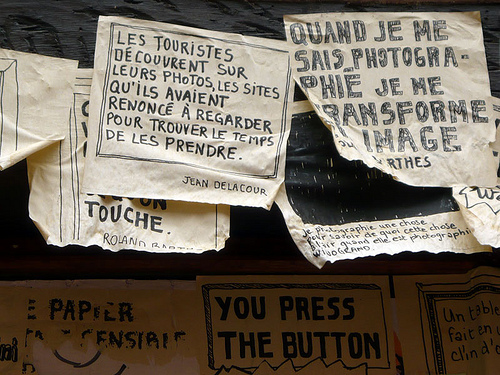 LES TOURISTES
DÉCOUVRENT SUR
LEURS PHOTOS, LES SITES
QU'ILS AVAIENT
RENONCÉ À REGARDER
POUR TROUVER LE TEMPS
DE LES PRENDRE.
JEAN DELACOUR
QUAND JE ME
SAIS PHOTOGRA-
PHIÉ JE ME
TRANSFORME
IMAGE
TOUCHE.
ROLAND
je photographie une chose
pour savoir de quoi cette chose
quand elle est photographiée
WINOGRAND.
PAPIER
SENSIBLE
YOU PRESS
THE BUTTON
Un
fait
clin d'